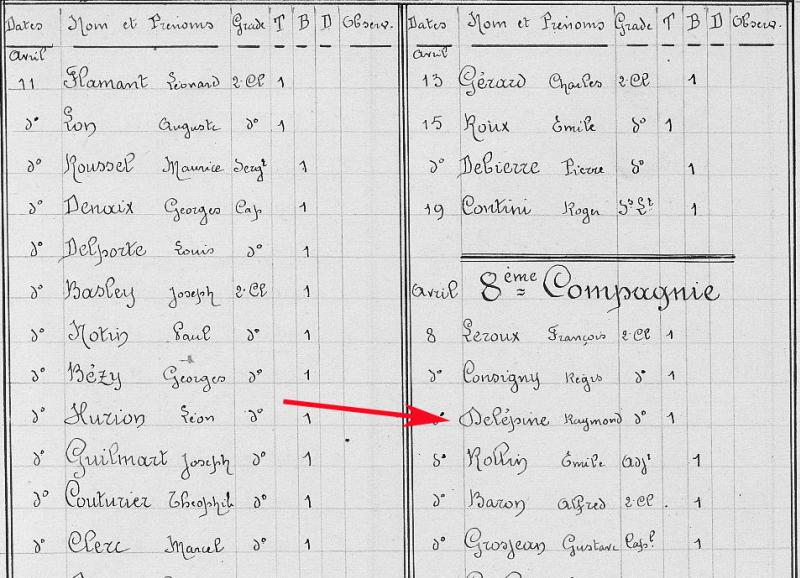 Dates Nom et Prénoms Grade T B D Observ.
Avril
11 Flamant Léonard 2.Cl 1
d° Lon Auguste d° 1
d° Roussel Maurice Sergt 1
d° Denoix Georges Cap 1
d° Delporte Louis d° 1
d° Basley Joseph 2.Cl 1
d° Notin Paul d° 1
d° Bézy Georges d° 1
d° Hurion Léon d° 1
d° Guilmart Joseph d° 1
d° Couturier Théophil d° 1
d° Clerc Marcel d° 1
Dates Nom et Prénoms Grade T B D Observ.
Avril
13 Gérard Charles 2.Cl 1
15 Roux Émile d° 1
d° Debierre Pierre d° 1
19 Contini Roger 1
Avril 8ème Compagnie
8 Leroux François 2.Cl 1
d° Consigny Régis d° 1
d° Delépine Raymond d° 1
d° Rollin Émile Adjt 1
d° Baron Alfred 2.Cl 1
d° Grosjean Gustave Capl 1